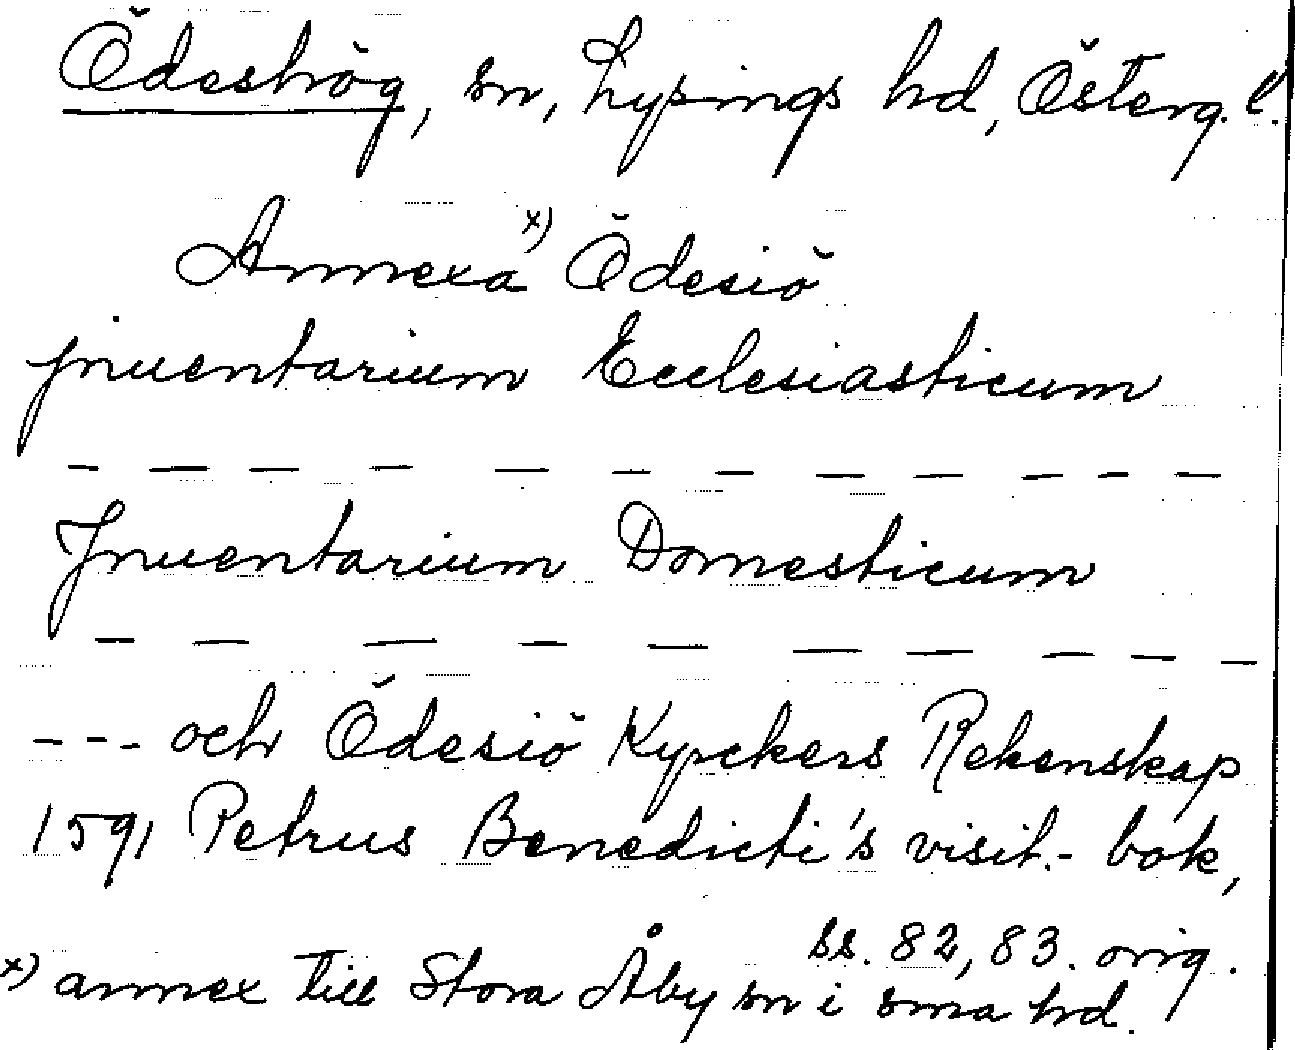 Ödeshög, sn, Lysings hd, Österg. l.
Annexa x) Ödesiö
jnuentarium Ecclesiasticum
— — — — — — — — — — — —
Jnuentarium Domesticum
— — — — — — — — — —
--- och Ödesiö Kyrckers Rekenskap
1591 Petrus Benedicti's visit.- bok,
ss. 82, 83. orig.
x) annex till Stora Åby sn i sma hd.